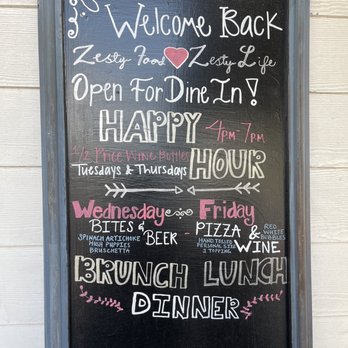 Welcome Back
Zesty Food Zesty Life
Open For Dine In!
HAPPY 4PM-7PM
1/2 PRICE WINE BOTTLES HOUR
TUESDAYS & THURSDAYS
Wednesday Friday
BITES &
BEER
SPINACH ARTICHOKE
HUSH PUPPIES
BRUSCHETTA
PIZZA &
WINE
HAND TOSSED
PERSONAL SIZE
2 TOPPING
RED
WHITE
BUBBLES
BRUNCH LUNCH
DINNER